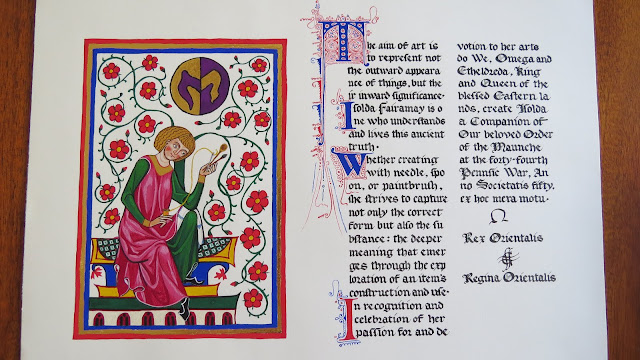 The aim of art is
to represent not
the outward appeara
nce of things, but the
ir inward significance.
Isolda Fairamay is o
ne who understands
and lives this ancient
truth.
Whether creating
with needle, spo
on, or paintbrush,
she strives to capture
not only the correct
form but also the su
bstance: the deeper
meaning that emer
ges through the exp
loration of an item's
construction and use.
In recognition and
celebration of her
passion for and de
votion to her arts
do We, Omega and
Etheldreda, King
and Queen of the
blessed Eastern la
nds, create Isolda
a Companion of
Our beloved Order
of the Maunche
at the forty-fourth
Pennsic War, An
no Societatis fifty,
ex hoc mera motu.
Ω
Rex Orientalis
Regina Orientalis